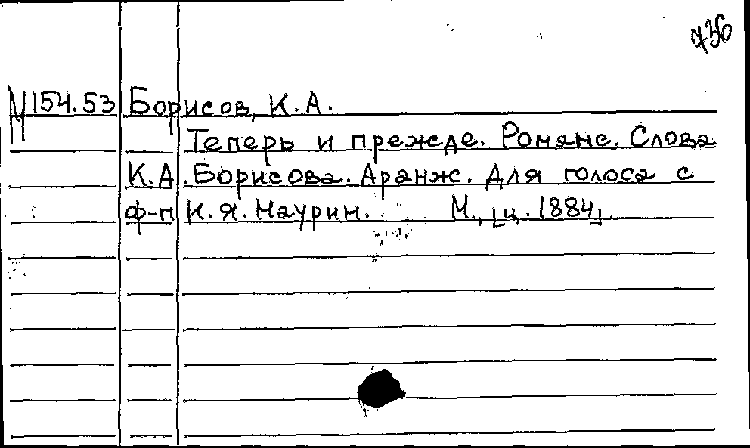 436
М154.53 Борисов, К.А.
Теперь и прежде. Романс. Слова
К.А. Борисова. Аранж. Для голоса с
ф-п К.Я. Маурин. М., [ц. 1884]